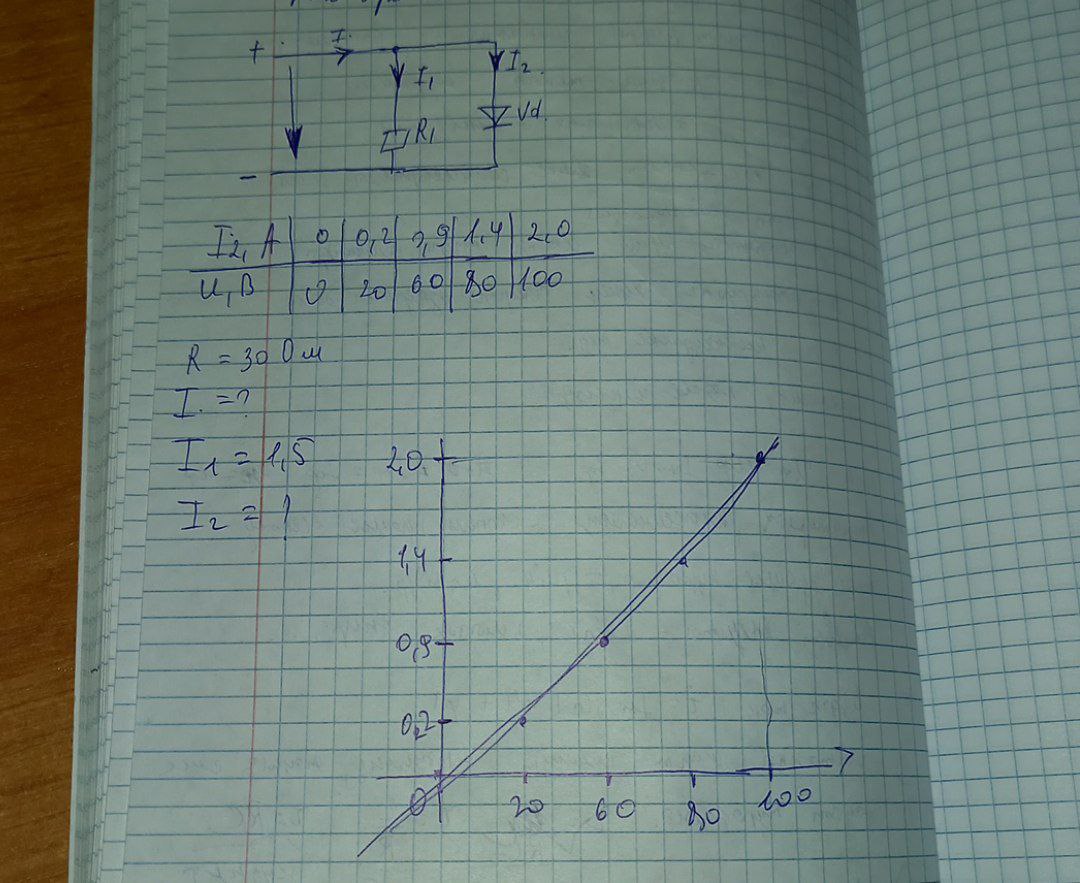 + I
I₁ I₂
R₁ Vd
-
I₂, A 0 0,2 0,9 1,4 2,0
U, В 0 20 60 80 100
R = 30 Ом
I = ?
I₁ = 1,5
I₂ = ?
2,0
1,4
0,9
0,2
0 20 60 80 100